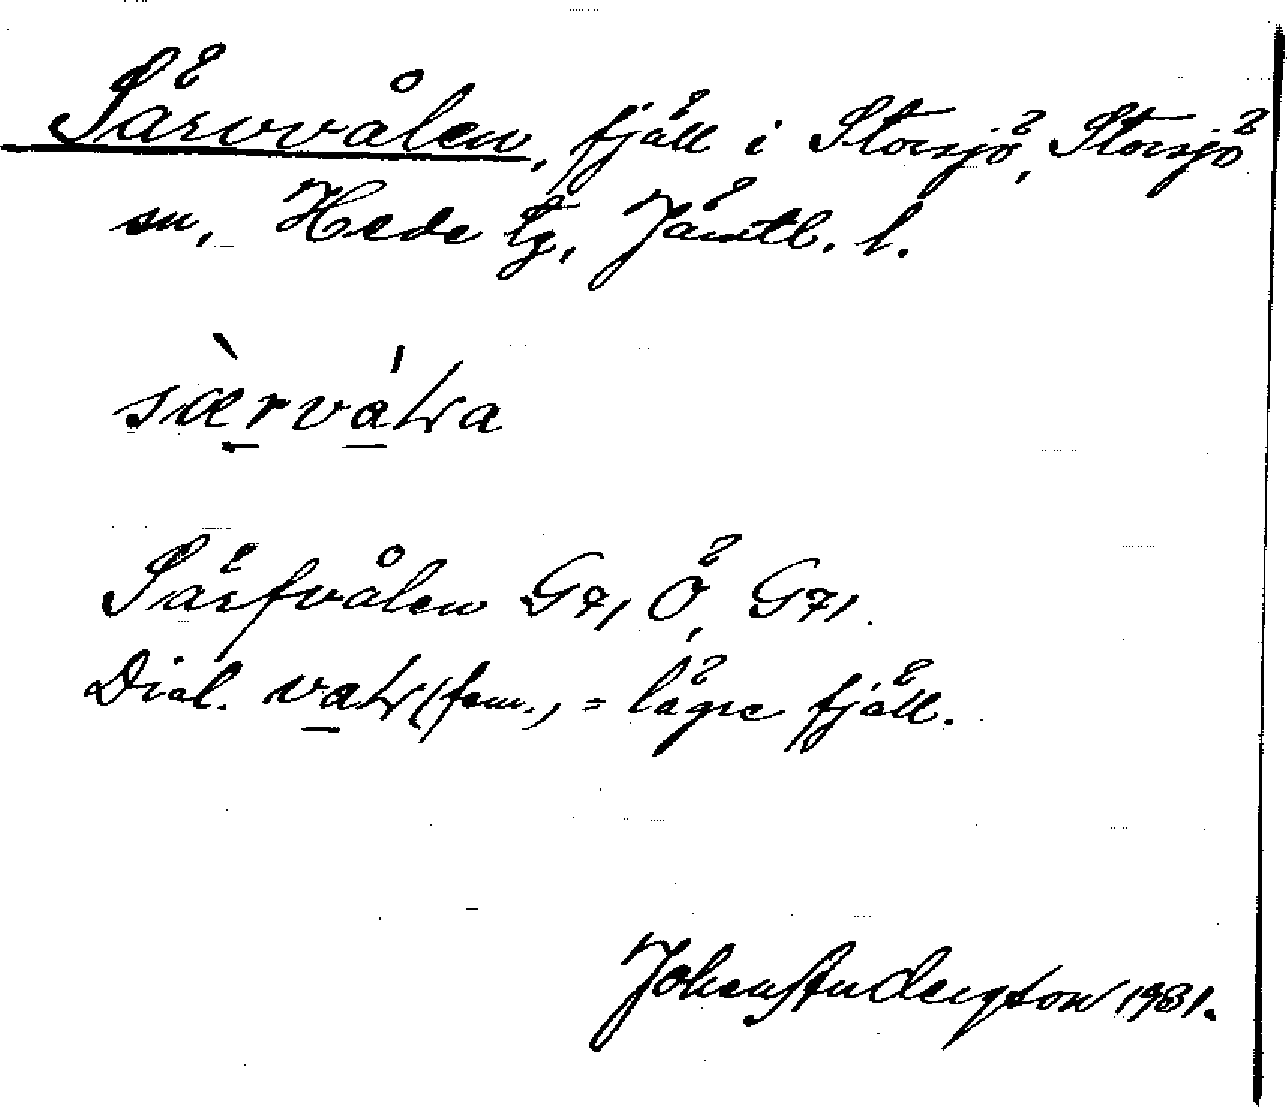 Särvvålen, fjäll i Storsjö, Storsjö
sn, Hede tg, Jämtl. l.
Särfvålen G71 Ö, G71.
Dial. (fem.) = lägre fjäll.
Johan Andersson 1931.